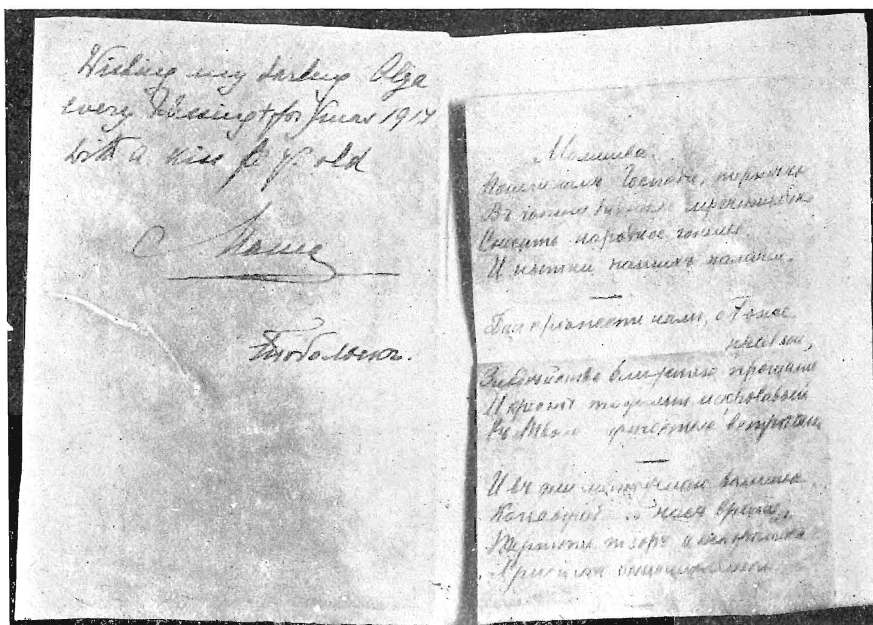 Wishing my darling Olga
every blessing for Xmas 1917
with a kiss fr yr old
Mama
Тобольскъ.
Молитва.
Господи, терпѣнье
Въ годину
Сносить народное гоненье
И пытки нашихъ палачей.
Дай крѣпости намъ, о Боже
правый,
Злодѣйство ближняго прощать
И крестъ тяжелый и кровавый
Съ Твоею кротостью встрѣчать
И въ дни мятежнаго волненья
насъ враги,
Терпѣть позоръ и оскорбленья